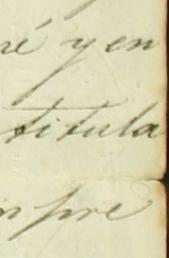 ré y en
titula
mpre